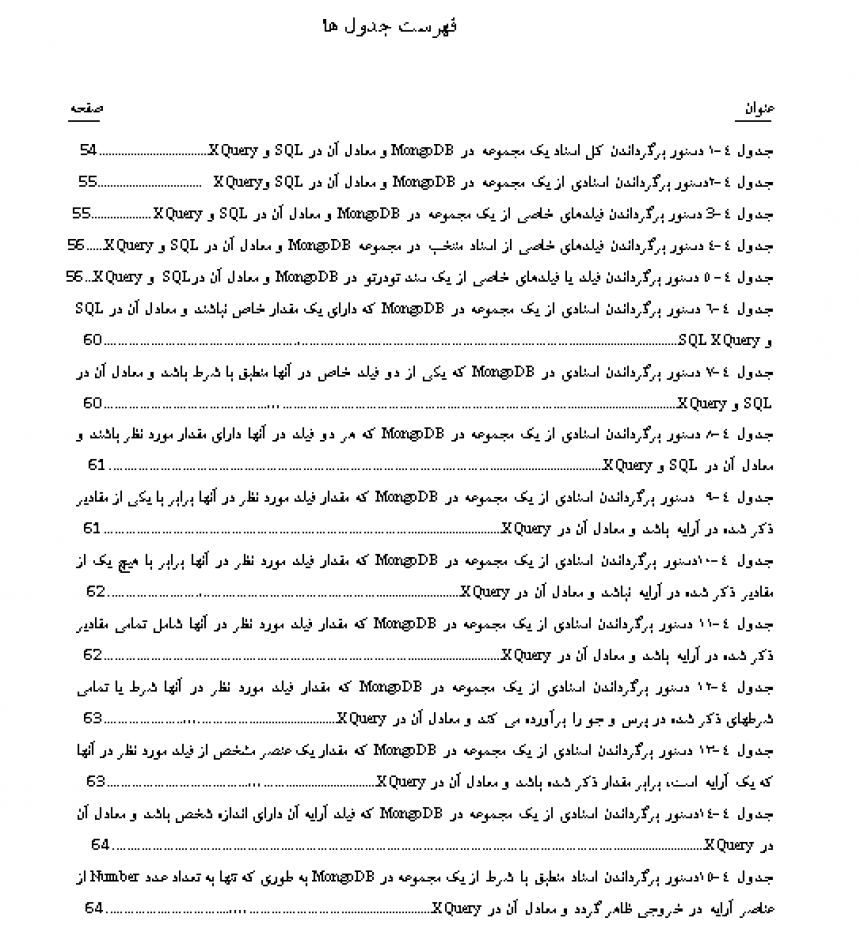 فهرست جدول ها
عنوان صفحه
جدول ٤-١ دستور برگرداندن کل اسناد یک مجموعه در MongoDB و معادل آن در SQL و XQuery..................................54
جدول ٤-٢دستور برگرداندن اسنادی از یک مجموعه در MongoDB و معادل آن در SQL وXQuery ................................55
جدول ٤-3 دستور برگرداندن فیلدهای خاصی از یک مجموعه در MongoDB و معادل آن در SQL و XQuery...................55
جدول ٤-٤ دستور برگرداندن فیلدهای خاصی از اسناد منتخب در مجموعه MongoDB و معادل آن در SQL و XQuery......56
جدول ٤-٥ دستور برگرداندن فیلد یا فیلدهای خاصی از یک سند تودرتو در MongoDB و معادل آن درSQL و XQuery...56
جدول ٤-٦ دستور برگرداندن اسنادی از یک مجموعه در MongoDB که دارای یک مقدار خاص نباشند و معادل آن در SQL
و SQL XQuery................................................................60
جدول ٤-٧ دستور برگرداندن اسنادی در MongoDB که یکی از دو فیلد خاص در آنها منطبق با شرط باشد و معادل آن در
SQL و XQuery................................................................60
جدول ٤-٨ دستور برگرداندن اسنادی از یک مجموعه در MongoDB که هر دو فیلد در آنها دارای مقدار مورد نظر باشند و
معادل آن در SQL و XQuery................................................................61
جدول ٤-٩ دستور برگرداندن اسنادی از یک مجموعه در MongoDB که مقدار فیلد مورد نظر در آنها برابر با یکی از مقادیر
ذکر شده در آرایه باشد و معادل آن در XQuery................................................................61
جدول ٤-١٠دستور برگرداندن اسنادی از یک مجموعه در MongoDB که مقدار فیلد مورد نظر در آنها برابر با هیچ یک از
مقادیر ذکر شده در آرایه نباشد و معادل آن در XQuery................................................................62
جدول ٤-١١ دستور برگرداندن اسنادی از یک مجموعه در MongoDB که مقدار فیلد مورد نظر در آنها شامل تمامی مقادیر
ذکر شده در آرایه باشد و معادل آن در XQuery................................................................62
جدول ٤-١٢ دستور برگرداندن اسنادی از یک مجموعه در MongoDB که مقدار فیلد مورد نظر در آنها شرط یا تمامی
شرطهای ذکر شده در پرس و جو را برآورده می کند و معادل آن در XQuery................................................................63
جدول ٤-١٣ دستور برگرداندن اسنادی از یک مجموعه در MongoDB که مقدار یک عنصر مشخص از فیلد مورد نظر در آنها
که یک آرایه است، برابر مقدار ذکر شده باشد و معادل آن در XQuery................................................................63
جدول ٤-١٤ دستور برگرداندن اسنادی از یک مجموعه در MongoDB که فیلد آرایه آن دارای اندازه شخص باشد و معادل آن
در XQuery................................................................64
جدول ٤-١٥دستور برگرداندن اسناد منطبق با شرط از یک مجموعه در MongoDB به طوری که تنها به تعداد عدد Number از
عناصر آرایه در خروجی ظاهر گردد و معادل آن در XQuery................................................................64